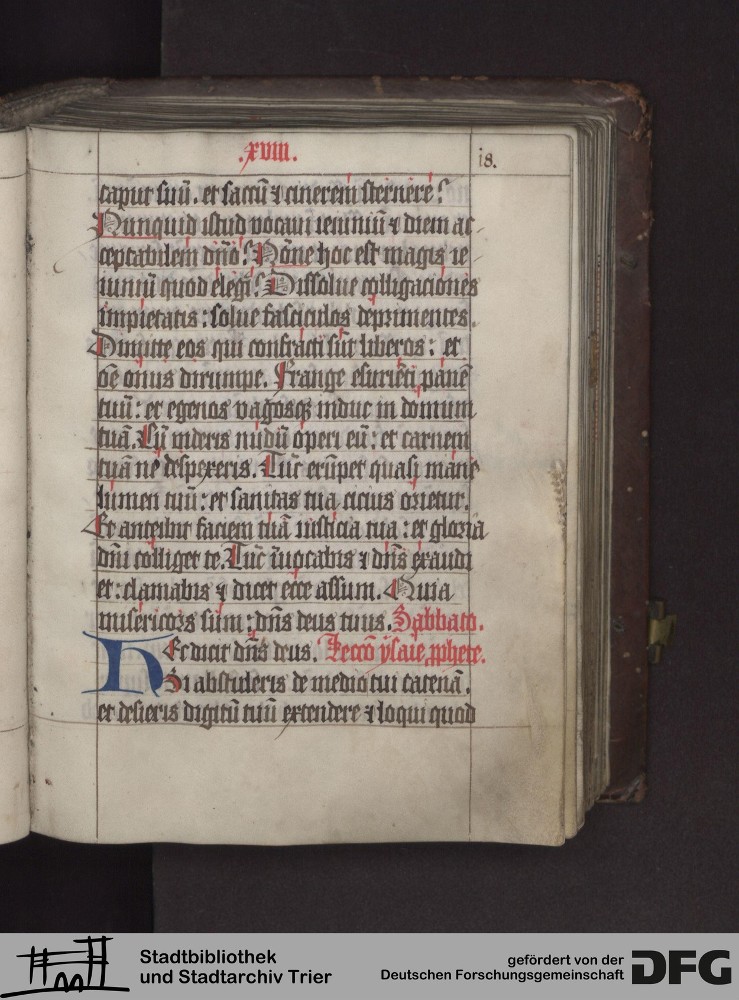 .xviii.
18.
caput suū. et saccū ⁊ cinerem sternere?
Nunquid istud vocaui ieiuniū ⁊ diem ac-
ceptabilem dn̄o? Nōne hoc est magis ie
iuniū quod elegi? Dissolue colligaciones
impietatis: solue fasciculos deprimentes.
Dimitte eos qui confracti sūt liberos: et
om̄e onus dirumpe. Frange esuriēti panē
tuū: et egenos vagosqꝫ induc in domum
tuā. Cū videris nudū operi eū: et carnem
tuā ne despexeris. Tūc erūpet quasi mane
lumen tuū: et sanitas tua cicius orietur.
Et anteibit faciem tuā iusticia tua: et gloria
dn̄i colliget te. Tūc īuocabis ⁊ dn̄s exaudi
et: clamabis ⁊ dicet ecce assum. Quia
misericors sum: dn̄s deus tuus. Sabbato.
Hec dicit dn̄s deus. Leccō ysaie ꝓphete.
Si abstuleris de medio tui catenā.
et desieris digitū tuū extendere ⁊ loqui quod
Stadtbibliothek
und Stadtarchiv Trier
gefördert von der
Deutschen Forschungsgemeinschaft
DFG